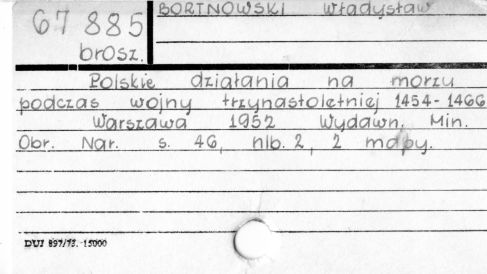 67 885
brosz.
BORTNOWSKI Władysław
Polskie działania na morzu
podczas wojny trzynastoletniej 1454-1466
Warszawa 1952 Wydawn. Min.
Obr. Nar. s. 46, nlb. 2, 2 mapy.
DUJ 897/73. 15000